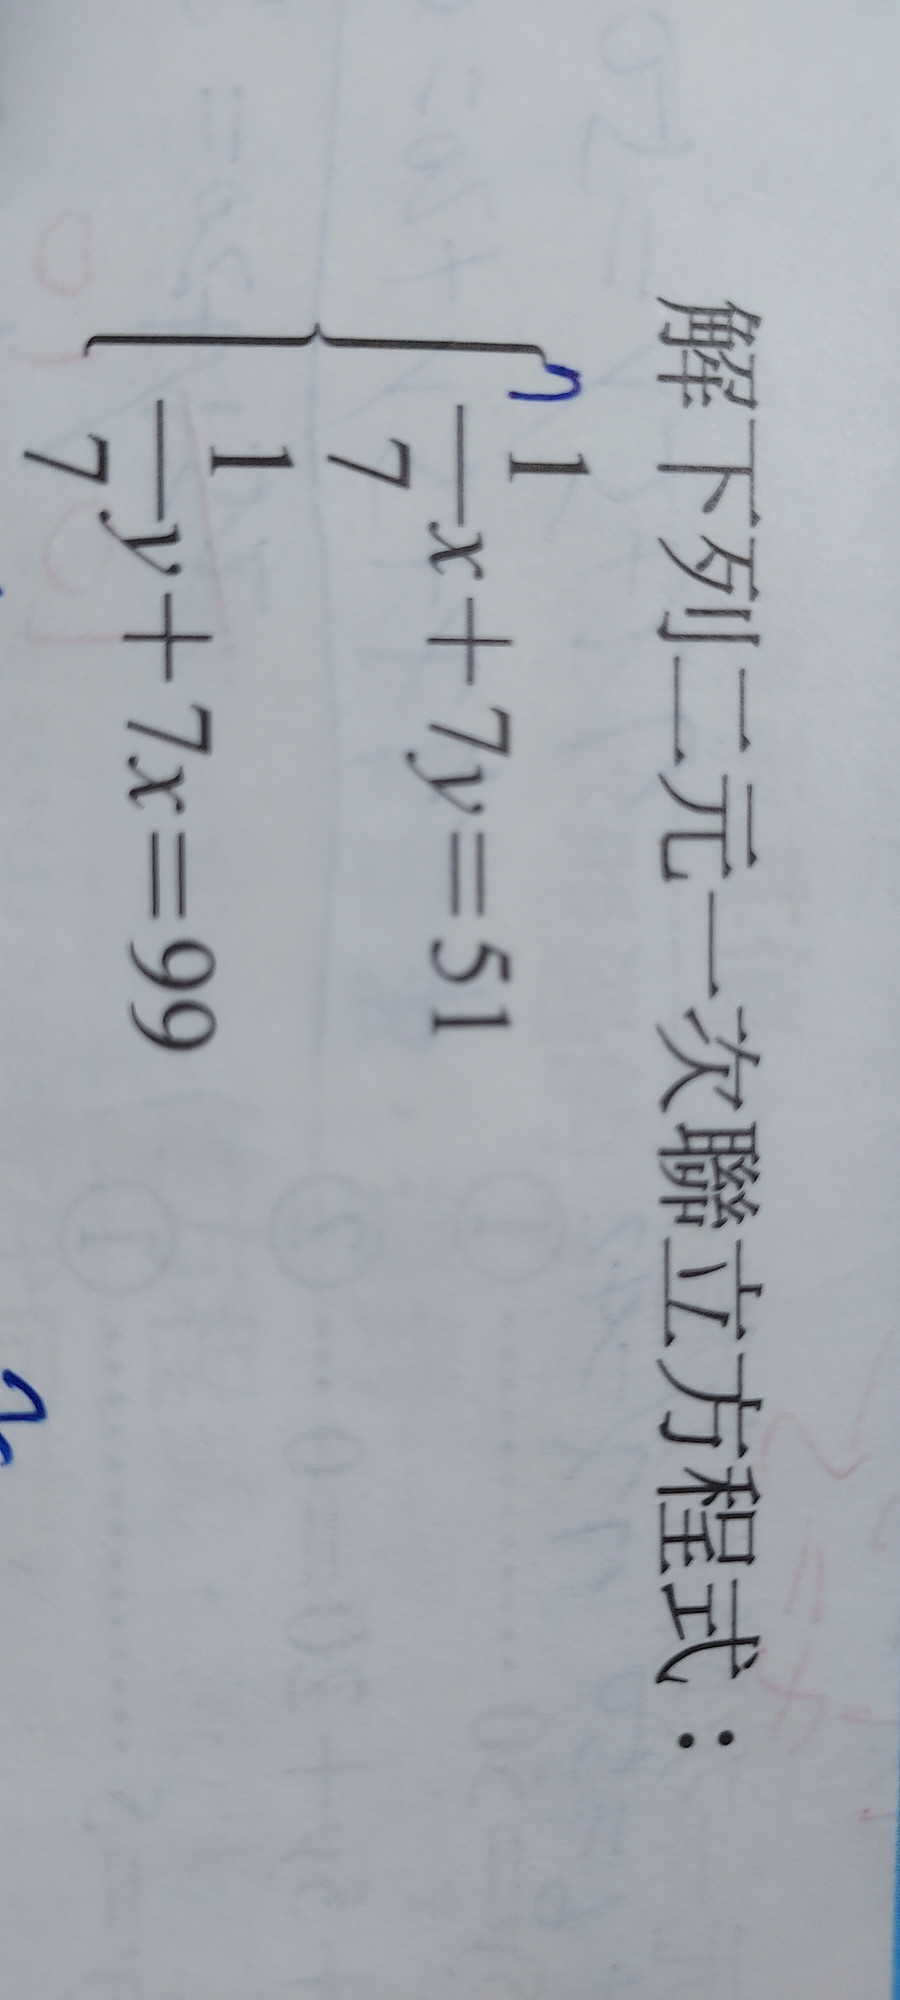 解下列二元一次聯立方程式：
1/7 x + 7y = 51
1/7 y + 7x = 99